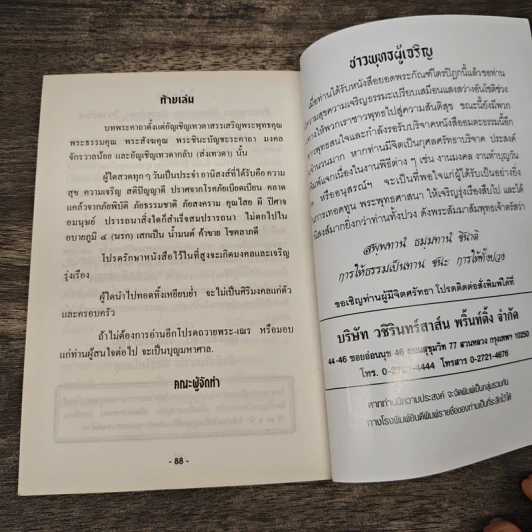 ท้ายเล่ม
บทพระคาถาตั้งแต่อัญเชิญเทวดาสรรเสริญพระพุทธคุณ
พระธรรมคุณ พระสังฆคุณ พระชินะบัญชะระคาถา มงคล
จักรวาลน้อย และอัญเชิญเทวดากลับ (ส่งเทวดา) นั้น
ผู้ใดสวดทุก ๆ วันเป็นประจำ อานิสงส์ที่ได้รับคือ ความ
สุข ความเจริญ สติปัญญาดี ปราศจากโรคภัยเบียดเบียน คลาด
แคล้วจากภัยพิบัติ ภัยธรรมชาติ ภัยสงคราม คุณไสย ผี ปีศาจ
อมนุษย์ ปรารถนาสิ่งใดก็สำเร็จสมปรารถนา ไม่ตกไปใน
อบายภูมิ ๔ (นรก) เสกเป็น น้ำมนต์ ค้าขาย โชคลาภดี
โปรดรักษาหนังสือไว้ในที่สูงจะเกิดมงคลและเจริญ
รุ่งเรือง
ผู้ใดนำไปทอดทิ้งเหยียบย่ำ จะไม่เป็นศิริมงคลแก่ตัว
และครอบครัว
ถ้าไม่ต้องการอ่านอีกโปรดถวายพระ-เณร หรือมอบ
แก่ท่านผู้สนใจต่อไป จะเป็นบุญมหาศาล.
คณะผู้จัดทำ
- 88 -
ชาวพุทธผู้เจริญ
เมื่อท่านได้รับหนังสือยอดพระกัณฑ์ไตรปิฎกนี้แล้วขอท่าน
ความสุขความเจริญธรรมะเปรียบเสมือนแสงสว่างอันโชติช่วง
ทางให้พวกเราชาวพุทธไปสู่ความสันติสุข ขณะนี้ยังมีพวก
พุทธสนใจและกำลังรอรับบริจาคหนังสืออมตะธรรมนี้อีก
จำนวนมาก หากท่านมีจิตเป็นกุศลศรัทธาบริจาค ประสงค์
พิมพ์แจกเนื่องในงานพิธีต่าง ๆ เช่น งานมงคล งานทำบุญวัน
หรืออนุสรณ์ฯ จะเป็นที่พอใจแก่ผู้ได้รับเป็นอย่างยิ่ง
การเทอดทูน พระพุทธศาสนา ให้เจริญรุ่งเรืองสืบไป และได้
นิสงส์มากยิ่งกว่าท่านทั้งปวง ดังพระสัมมาสัมพุทธเจ้าตรัสว่า
สพฺพทานํ ธมฺมทานํ ชินาติ
การให้ธรรมเป็นทาน ชนะ การให้ทั้งปวง
ขอเชิญท่านผู้มีจิตศรัทธา โปรดติดต่อสั่งพิมพ์ได้ที่
บริษัท วชิรินทร์สาส์น พริ้นท์ติ้ง จำกัด
44-46 ซอยอ่อนนุช 46 ถนนสุขุมวิท 77 สวนหลวง กรุงเทพฯ 10250
โทร. 4444 โทรสาร 0-2721-4676
หากท่านมีความประสงค์ จะจัดพิมพ์เป็นกลุ่มรวมกัน
ทางโรงพิมพ์ยินดีพิมพ์รายชื่อของท่านเป็นที่ระลึกไว้ได้